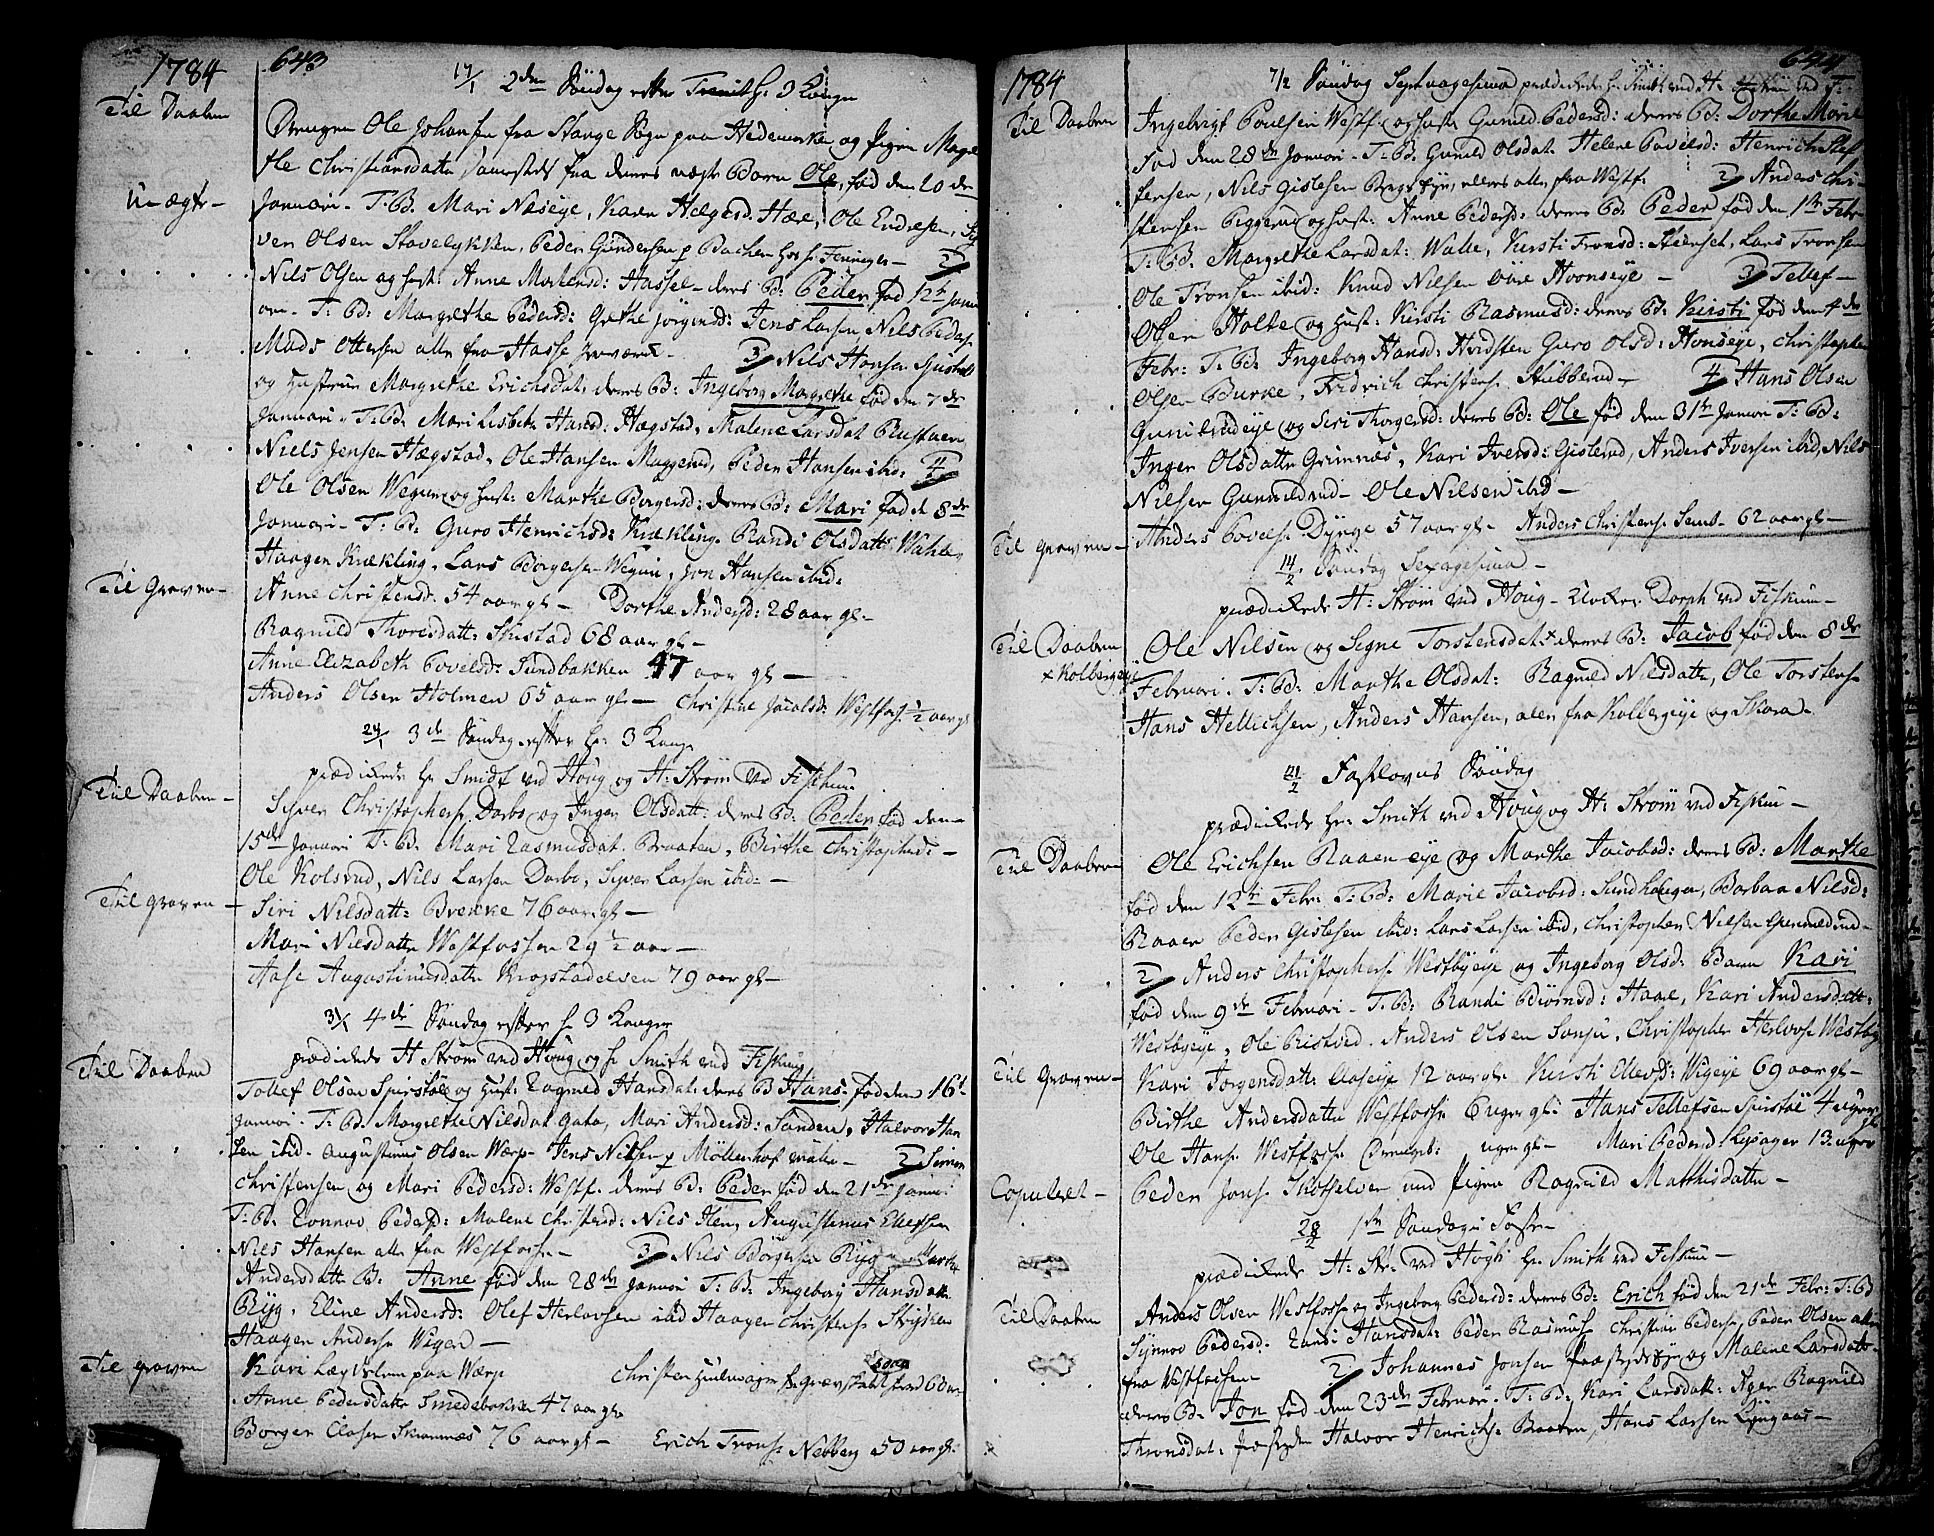 1784 643
17/1 2den Søndag efter Trinit: 3 Konger
Til Daaben
Drengen Ole Johansen fra Stange Sogn paa Hedemarken og Pigen Magre
the Christiansdatter sammesteds fra deres uægte Barn Ole, fød den 20de
U-ægte-
Januari. T: B. Mari Næseye, Karen Helgesd: Hæe, Ole Endresen, Sy
ver Olsen Stavelykken, Peder Gundersen
Nils Olsen og Hust: Anne Mortensd: Hassel- deres B: Peder fød 12te Janu
ari- T: B: Margrethe Pedersd: Grethe Jørgensd: Jens Larsen Nils Peders:
Mads Ottersen alle fra Hasse 3 Nils Hansen
og Hustrue Margrethe Erichsdat: deres B: Ingeborg Margrethe fød den 7de
Januari. T: B: Mari Lisbeth Hansd: Hægstad, Malene Larsdat: Rustaen
Niels Jensen Hægstad, Ole Hansen Muggerud, Peder Hansen ibid. 4
Ole Olsen Wegun og Hust: Marthe Borgersd: deres B: Mari fød d 8de
Januari- T: B: Guro Henrichsd: Krækling. Randi Olsdatt: Wahle,
Haagen Krækling, Lars Borgerse Wegun, Jon Hansen ibid:
Til Graven-
Anne Christensd: 54 aar gl- Dorthe Andersd: 28 aar gl-
Ragnild Thoresdatt: Skistad 68 aar gl-
Anne Elizabeth Povelsd: Sundbakken 47 aar gl-
Anders Olsen Holmen 65 aar gl- Christine Jacobsd: Westfos: 1/2 aar gl
24/1 3de Søndag efter H: 3 Konge
prædikede Hr Smidt ved Houg og H: Strøm ved Fiskum
Til Daaben-
Syver Christophers: Darbo og Inger Olsdatt: deres B: Peder fød den
15de Januari T: B: Mari Rasmusdat: Braaten, Birthe Christophersd:-
Ole Kolsrud, Nils Larsen Darbo, Syver Larsen ibid:-
Til Graven-
Siri Nilsdatt: Brekke 76 aar gl-
Mari Nilsdatter Westfossen 29 1/2 aar-
Aase Augustinusdatter Krogstadelsen 79 aar gl-
31/1 4de Søndag efter H 3 Konger
prædikede H Strøm ved Houg og H Smith ved Fiskum
Til Daaben
Tollef Olsen Spirstøl og Hust: Ragned Hansdat: deres B Hans fød den 16d
Januari- T: B. Margrethe Nilsdat: Mari Andersd: Sanden, Halvor Han
sen ibid- Augustinus Olsen Wærp- Jens Nilsen Møllenhof 2 Simen
Christensen og Mari Pedersd: Westf- deres B: Peder fød den 21de Januari
T: B: Ronnov Pedersd: Malene Christensd: Nils Iten, Augustinus Ellefsen
Nils Hansen alle fra Westfosse- 3 Nils Børgesen Ryg Marthe
Andersdatter B: Anne fød den 28de Januari T: B: Ingeborg Hansdatt:
Ryg, Eline Andersd: Olef Herlovsen ibid Haagen Christens:
Haagen Anderse Wegun-
Til Graven
Kari paa Wærp Christen 60 aar
Anne Pedersdatter Smedebakken 47 aar gl-
Borger Clasen Skramnæs 76 aar gl- Erich Trons: Nebberg 50 aar gl:
1784 644
7/2 Søndag Septuagesima prædikede Hr Smith ved H-
Til Daaben
Ingebrigt Poulsen Westf: og Hust: Gunild Pedersd: deres B: Dorthe Marie
fød den 28de Januari- T: B: Gunild Olsdat: Helene Povelsd: Henrich
Jensen, Nils Gislesen alle fra Westf. 2 Anders Chri-
stensen Eggerud og Hust: Anne Pedersd: deres B: Peder fød den 1ste Febr:
T: B: Margrethe Larsdat: Walle, Kirsti Tronsd: Stenset, Lars Tronsen
Ole Tronsen ibid: Knud Nilsen Hoenseye- 3 Tellef-
Olsen Holte og Hust: Kirsti Rasmusd: deres B: Kirsti fød den 4de
Febr: T: B: Ingeborg Hansd: Guro Olsd: Honseye, Christopher
Olsen Burke, Fridrich Christens: Stubberud- 4 Hans Olsen
Gunildrudeye og Siri Thorgersd: deres B: Ole fød den 31te Januari T: B:
Inger Olsdatter Grimnæs, Kari Iversd: Gislerud, Anders Iversen ibid, Nils
Nilsen Gunnildrud- Ole Nilsen ibid-
Til Graven-
Anders Povels: Dynge 57 aar gl- Anders Christens: Sems- 62 aar gl-
14/2 Søndag Sexagesima-
prædikede H: Strøm ved Houg- Klokker Dorph ved Fiskum-
Til Daaben
x Kolbergeye
Ole Nilsen og Segne Torstensdat: x deres B: Jacob fød den 8de
Februari. T: B: Marthe Olsdat: Ragnild Nilsdatter, Ole Torstens:
Hans Hellichsen, Anders Hansen, alle fra Kolbergeye og Skara-
21/2 Fastelavns Søndag
prædikede Hr: Smith ved Houg og H: Strøm ved Fiskum-
Til Daaben
Ole Erichsen Raaen eye og Marthe Jacobsd: deres B: Marthe
fød den 12te Febr: T: B: Marie Jacobsd: Sundhaugen, Barbara Nilsd:
Raaen Peder Gislesen ibid: Lars Larsen ibid, Christopher Nilsen Gunnildrud-
2 Anders Christophers: Westbyeye og Ingeborg Olsd: Barn Kari
fød den 9de Februari- T: B: Randi Biørnsd: Haae, Kari Andersdatt:
Westbyeye, Ole Ristvед. Anders Olsen Sonju, Christopher Herlovs: Westby
Til Graven-
Kari Jorgensdatt: Aaseye 12 aar gl- Kirsti Ellevsd: Wigeye 69 aar gl-
Birthe Andersdatter Westfosse 6 uger gl- Hans Tellefsen Spirstøl 4 uger gl
Ole Hans: Westfosse uger gl- Mari Pedersd: 13 uger
Copuleret-
Peder Jons: Skotselven med Pigen Ragnild Matthisdatter-
28/2 1ste Søndag i Faste-
prædikede H: Str: ved Hough Hr: Smith ved Fiskum-
Til Daaben
Anders Olsen Westfosse og Ingeborg Pedersd: deres B: Erich fød den 21de Febr: T: B
Synnov Pedersd: Randi Hansdat: Peder Rasmus: Christian Peders: Peder Olsen alle
fra Westfossen 2 Johannes Jonsen og Malene Larsdatt:
deres B: Jon fød den 23de Februari. T: B: Kari Larsdatt: Ragnild
Thronsdat: Halvor Henrichs: Braaten, Hans Larsen